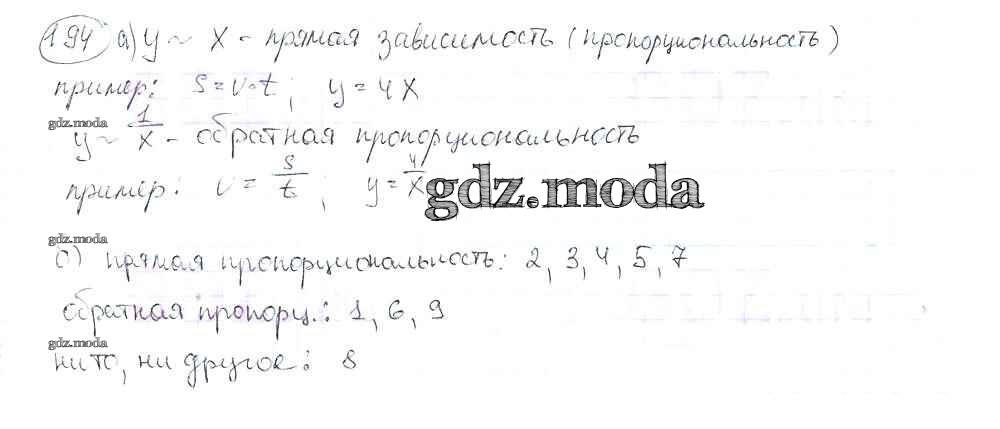 194 а) y ~ x - прямая зависимость (пропорциональность)
пример: S = v·t ; y = 4x
gdz.moda
y ~ 1/x - обратная пропорциональность
пример: v = s/t ; y = 4/x
gdz.moda
gdz.moda
б) прямая пропорциональность: 2, 3, 4, 5, 7
обратная пропорц.: 1, 6, 9
gdz.moda
ни то, ни другое: 8